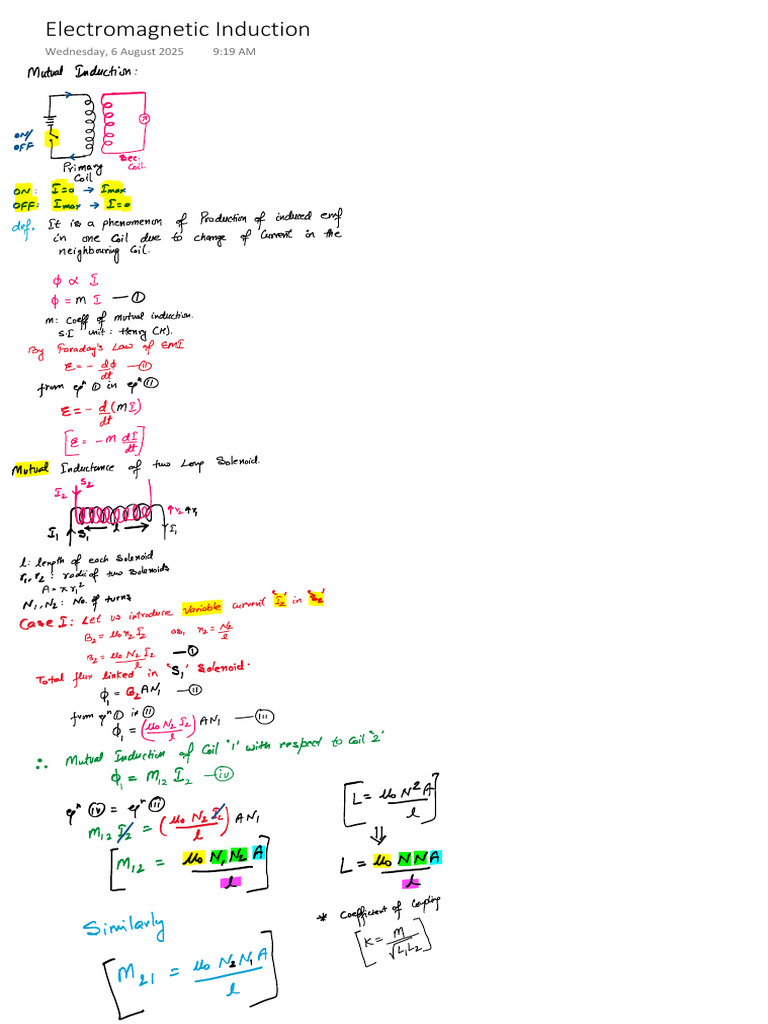 Electromagnetic Induction
Wednesday, 6 August 2025 9:19 AM
Mutual Induction:
ON/
OFF
Primary
Coil
Sec.
Coil.
ON: I=0 → Imax
OFF: Imax → I=0
def. It is a phenomenon of Production of induced emf
in one Coil due to change of Current in the
neighbouring Coil.
ϕ ∝ I
ϕ = m I — ①
m: Coeff of mutual induction.
S.I unit: Henry (H).
By Faraday's Law of EMI
ε = - dϕ/dt — ⓘⓘ
from eqⁿ ① in eqⁿ ⓘⓘ
ε = - d/dt (m I)
[ε = -M dI/dt]
Mutual Inductance of two Long Solenoid.
I₂ S₂
r₂ r₁
I₁ S₁ ← l → I₁
l: length of each Solenoid
r₁, r₂: radii of two Solenoids
A = πr₁²
N₁, N₂: No. of turns
Case I: Let us introduce variable current 'I₂' in 'S₂'
B₂ = μ₀ n₂ I₂ as, n₂ = N₂/l
B₂ = μ₀ N₂ I₂/l — ①
Total flux linked in 'S₁' Solenoid.
ϕ₁ = B₂ A N₁ — ⓘⓘ
from eqⁿ ① in ⓘⓘ
ϕ₁ = (μ₀ N₂ I₂/l) A N₁ — ⓘⓘⓘ
∴ Mutual Induction of Coil '1' with respect to Coil '2'
ϕ₁ = M₁₂ I₂ — ⓘⓥ
eqⁿ ⓘⓥ = eqⁿ ⓘⓘⓘ
M₁₂ I₂ = (μ₀ N₂ I₂/l) A N₁
[M₁₂ = μ₀ N₁ N₂ A/l]
Similarly
[M₂₁ = μ₀ N₂ N₁ A/l]
[L = μ₀ N² A/l]
⇓
L = μ₀ N N A/l
* Coefficient of Coupling
[K = M/√L₁L₂]